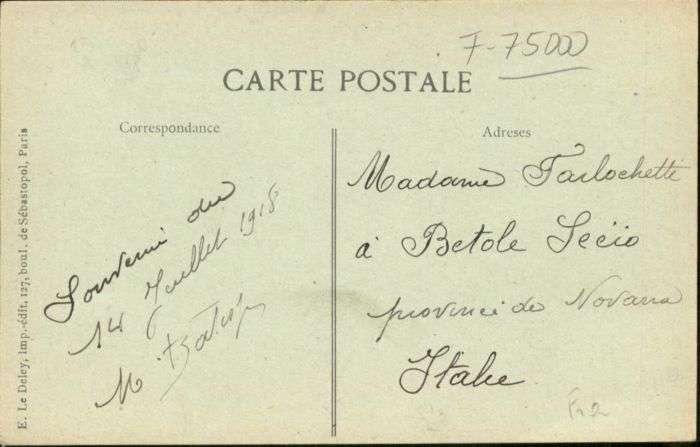 7-75000
CARTE POSTALE
Correspondance
Adreses
Souvenir du
14 Juillet 1918
M
Madame Tarlochetti
à Betole Secio
province de Novara
Italie
Fr 2
E. Le Deley, Imp.-édit. 127, boul. de Sébastopol, Paris